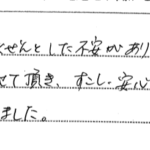 ぜんとした不安があり
せて頂き、すこし安心
ました。